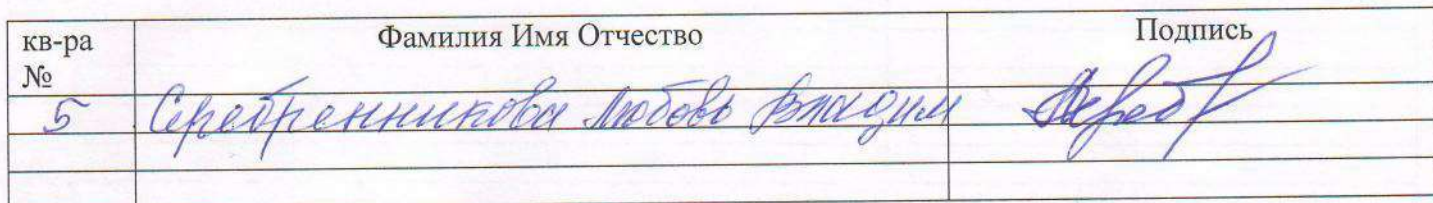 кв-ра № Фамилия Имя Отчество Подпись
5 Серебренникова Любовь Владим